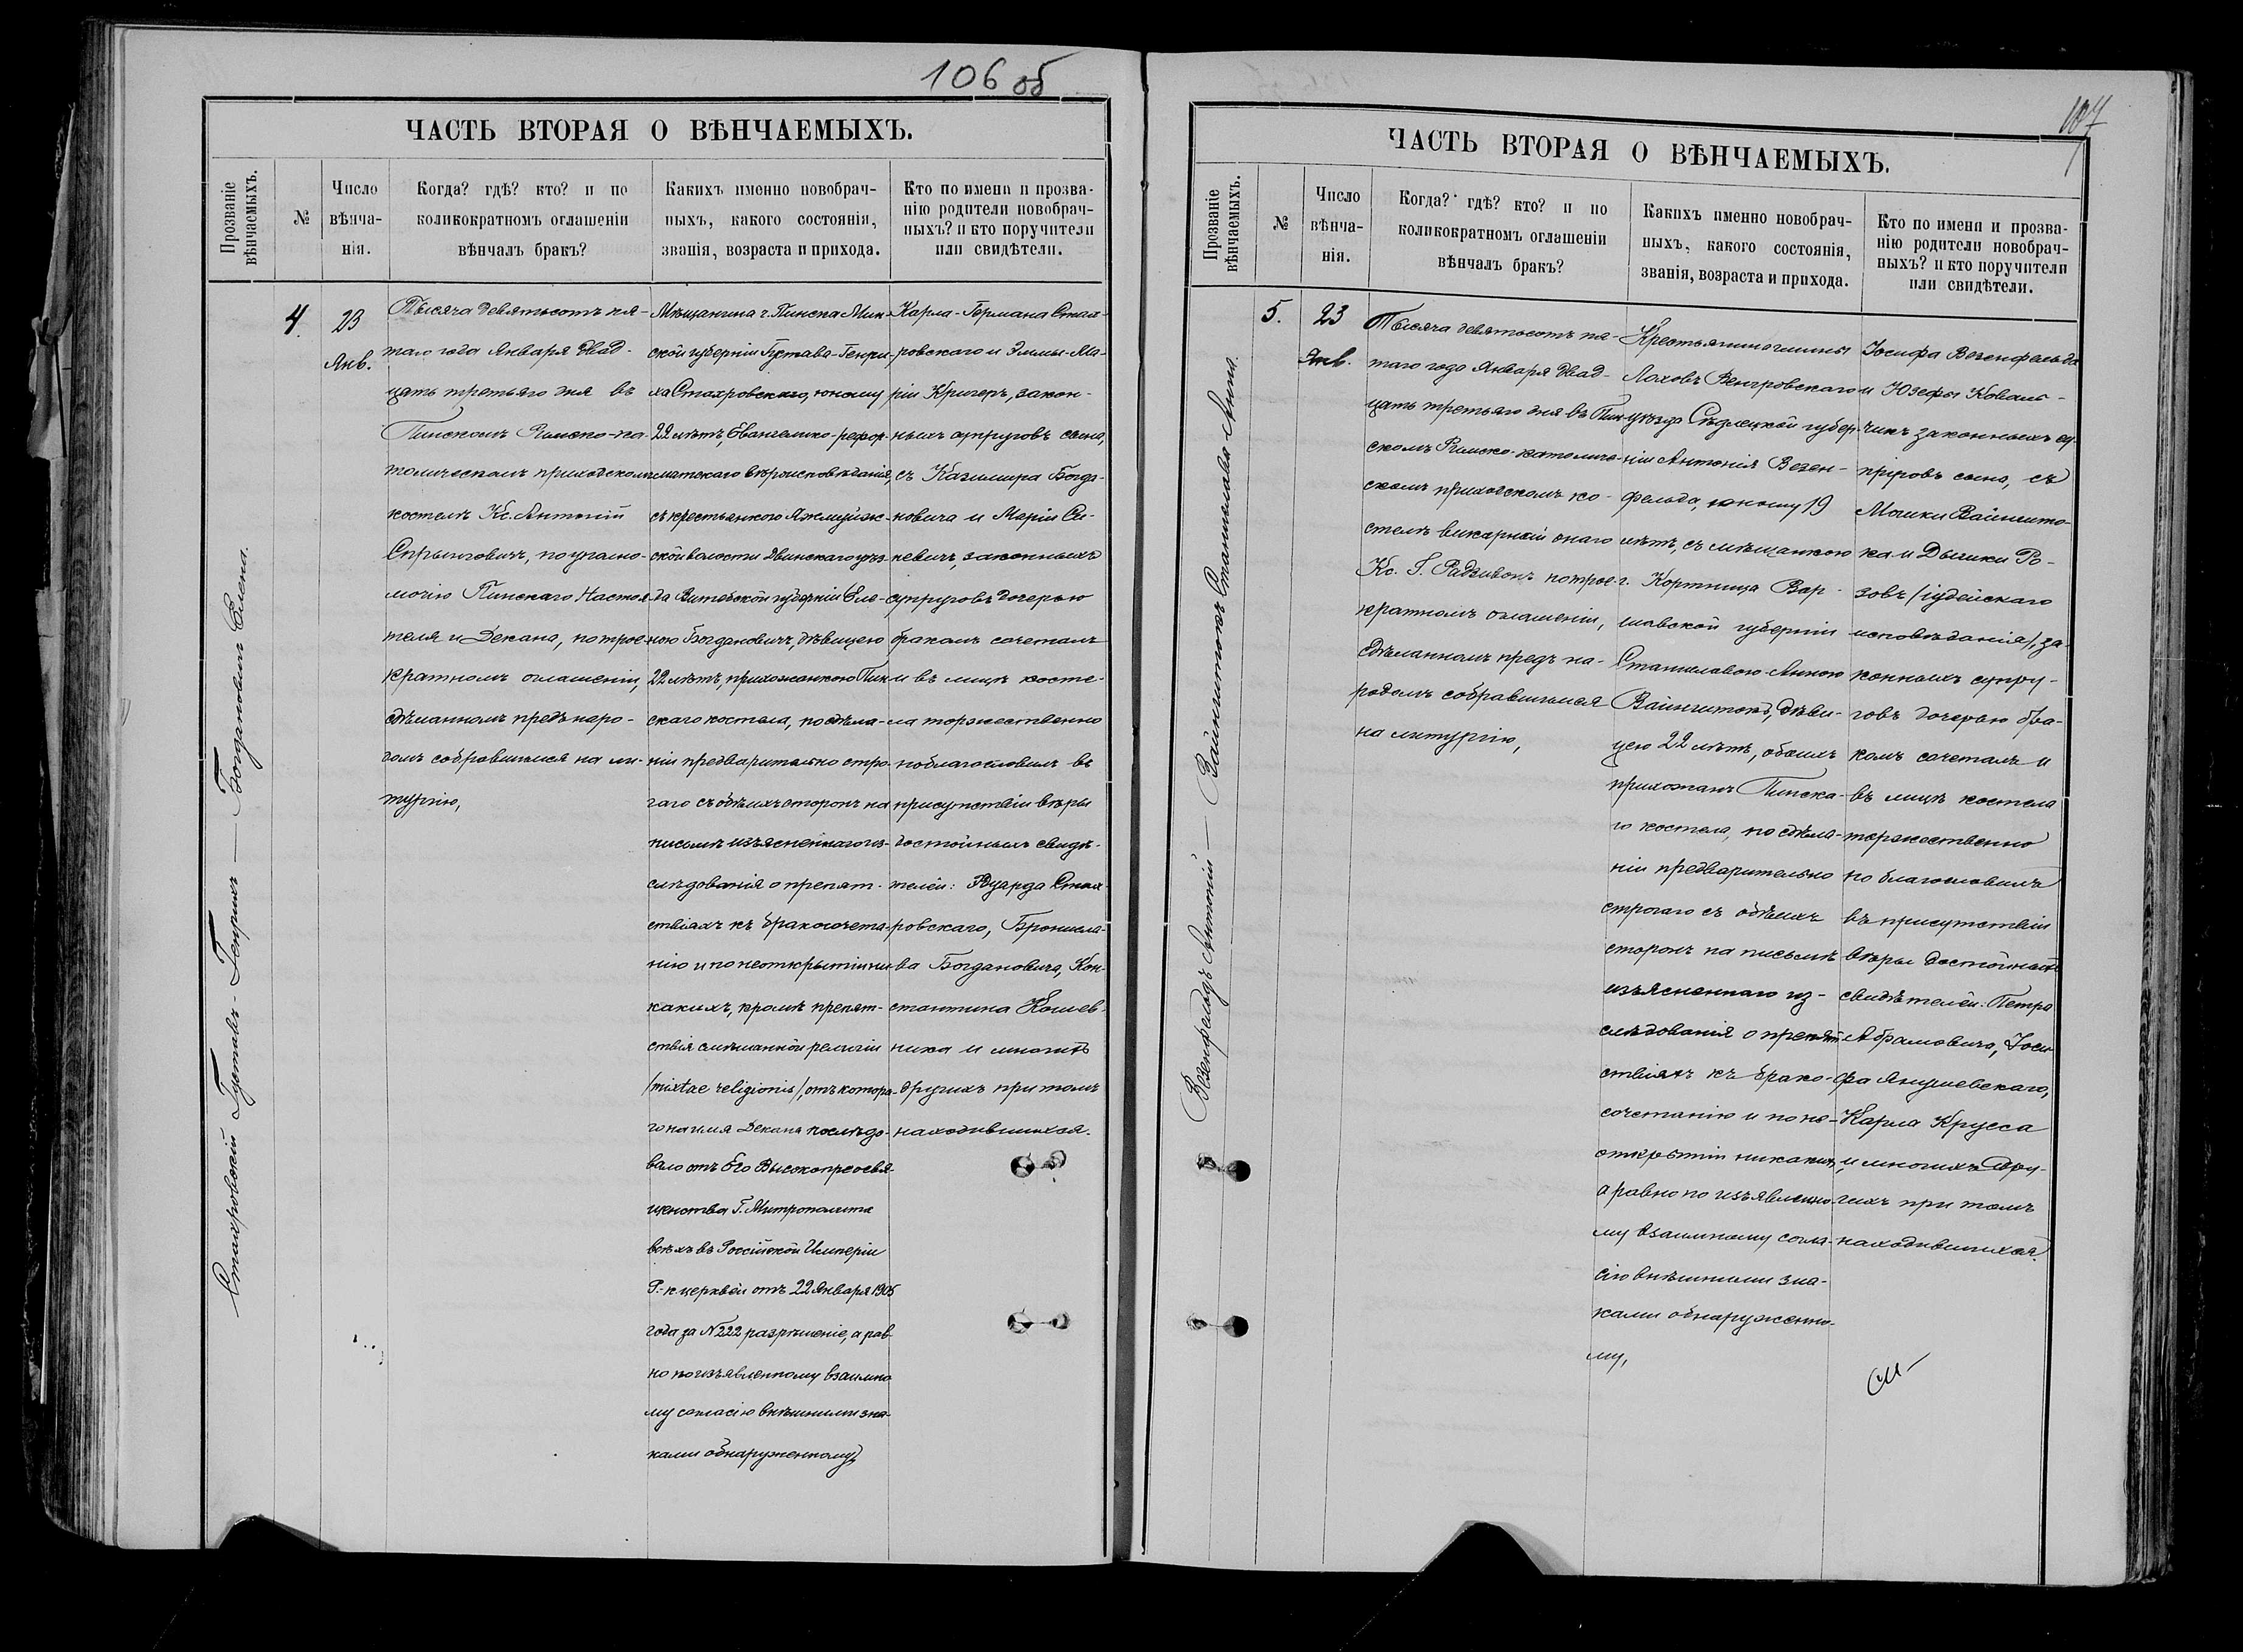 106 об
ЧАСТЬ ВТОРАЯ О ВѢНЧАЕМЫХЪ.
Прозваніе
вѣнчаемыхъ.
№
Число
вѣнча-
нія.
Когда? гдѣ? кто? и по
коликократномъ оглашеніи
вѣнчалъ бракъ?
Какихъ именно новобрач-
ныхъ, какого состоянія,
званія, возраста и прихода.
Кто по имени и прозва-
нію родители новобрач-
ныхъ? и кто поручители
или свидѣтели.
Стахровскій Густавъ-Генрихъ — Богдановичъ Елена.
4.
23
Янв.
Тысяча девятьсотъ пя-
таго года Января двад-
цать третьяго дня въ
Пинскомъ Римско-ка-
толическомъ приходскомъ
костелѣ Кс. Антоній
Спрынговичъ, по уполно-
мочію Пинскаго Настоя-
теля и Декана, по трое-
кратномъ оглашеніи,
сдѣланномъ предъ наро-
домъ собравшимся на ли-
тургію,
Мѣщанина г. Пинска Мин-
ской губерніи Густава-Генри-
ха Стахровскаго, юношу
22 лѣтъ, Евангелико-рефор-
матскаго вѣроисповѣданія,
съ крестьянкою
ской волости Двинскаго уѣз-
да Витебской губерніи Еле-
ною Богдановичъ, дѣвицею
22 лѣтъ, прихожанкою Пин-
скаго костела, по сдѣла-
ніи предварительно стро-
гаго съ обѣихъ сторонъ на
письмѣ изъясненнаго из-
слѣдованія о препят-
ствіяхъ къ бракосочета-
нію и по неоткрытіи ни-
какихъ, кромѣ препят-
ствія смѣшанной религіи
/mixtae religionis/, отъ котора-
го на имя Декана послѣдо-
вало отъ Его Высокопреосвя-
щенства Г. Митрополита
всѣхъ въ Россійской Имперіи
Р.-к. церквей отъ 22 Января 1905
года за № 222 разрѣшеніе, а рав-
но по изъявленному взаимно-
му согласію внѣшними зна-
ками обнаруженному,
Карла-Германа Стах-
ровскаго и Эммы-Ма-
ріи Кригеръ, закон-
ныхъ супруговъ сына,
съ Казимира Богда-
новича и Маріи Си-
кевичъ, законныхъ
супруговъ дочерью
бракомъ сочеталъ
и въ лицѣ косте-
ла торжественно
поблагословилъ въ
присутствіи вѣры
достойныхъ свидѣ-
телей: Эдуарда Стах-
ровскаго, Бронисла-
ва Богдановича, Кон-
стантина
и многихъ
другихъ при томъ
находившихся.
107
ЧАСТЬ ВТОРАЯ О ВѢНЧАЕМЫХЪ.
Прозваніе
вѣнчаемыхъ.
№
Число
вѣнча-
нія.
Когда? гдѣ? кто? и по
коликократномъ оглашеніи
вѣнчалъ бракъ?
Какихъ именно новобрач-
ныхъ, какого состоянія,
званія, возраста и прихода.
Кто по имени и прозва-
нію родители новобрач-
ныхъ? и кто поручители
или свидѣтели.
Везенфельдъ Антоній — Вайнштокъ Станислава-Анна.
5.
23
Янв.
Тысяча девятьсотъ пя-
таго года Января двад-
цать третьяго дня въ Пин-
скомъ Римско-католиче-
скомъ приходскомъ ко-
стелѣ викарный онаго
Кс. І. Радзивонъ по трое-
кратномъ оглашеніи,
сдѣланномъ предъ на-
родомъ собравшимся
на литургію,
Крестьянина гмины
Лоховъ Венгровскаго
уѣзда Сѣдлецкой губер-
ніи Антонія Везен-
фельда, юношу 19
лѣтъ, съ мѣщанкою
г. Вар-
шавской губерніи
Станиславою-Анною
Вайнштокъ, дѣви-
цею 22 лѣтъ, обоихъ
прихожанъ Пинска-
го костела, по сдѣла-
ніи предварительно
строгаго съ обѣихъ
сторонъ на письмѣ
изъясненнаго из-
слѣдованія о препят-
ствіяхъ къ брако-
сочетанію и по не-
открытіи никакихъ,
а равно по изъявленно-
му взаимному согла-
сію внѣшними зна-
ками обнаруженно-
му,
Іосифа Везенфельда
и Юзефы Коваль-
чикъ законныхъ су-
пруговъ сына, съ
Мошки Вайншто-
ка и Ро-
зовъ /іудейскаго
исповѣданія/, за-
конныхъ супру-
говъ дочерью бра-
комъ сочеталъ и
въ лицѣ костела
торжественно
поблагословилъ
въ присутствіи
вѣры достойныхъ
свидѣтелей: Петра
Абрамовича, Іоси-
фа Янушевскаго,
Карла Крусса
и многихъ дру-
гихъ при томъ
находившихся.